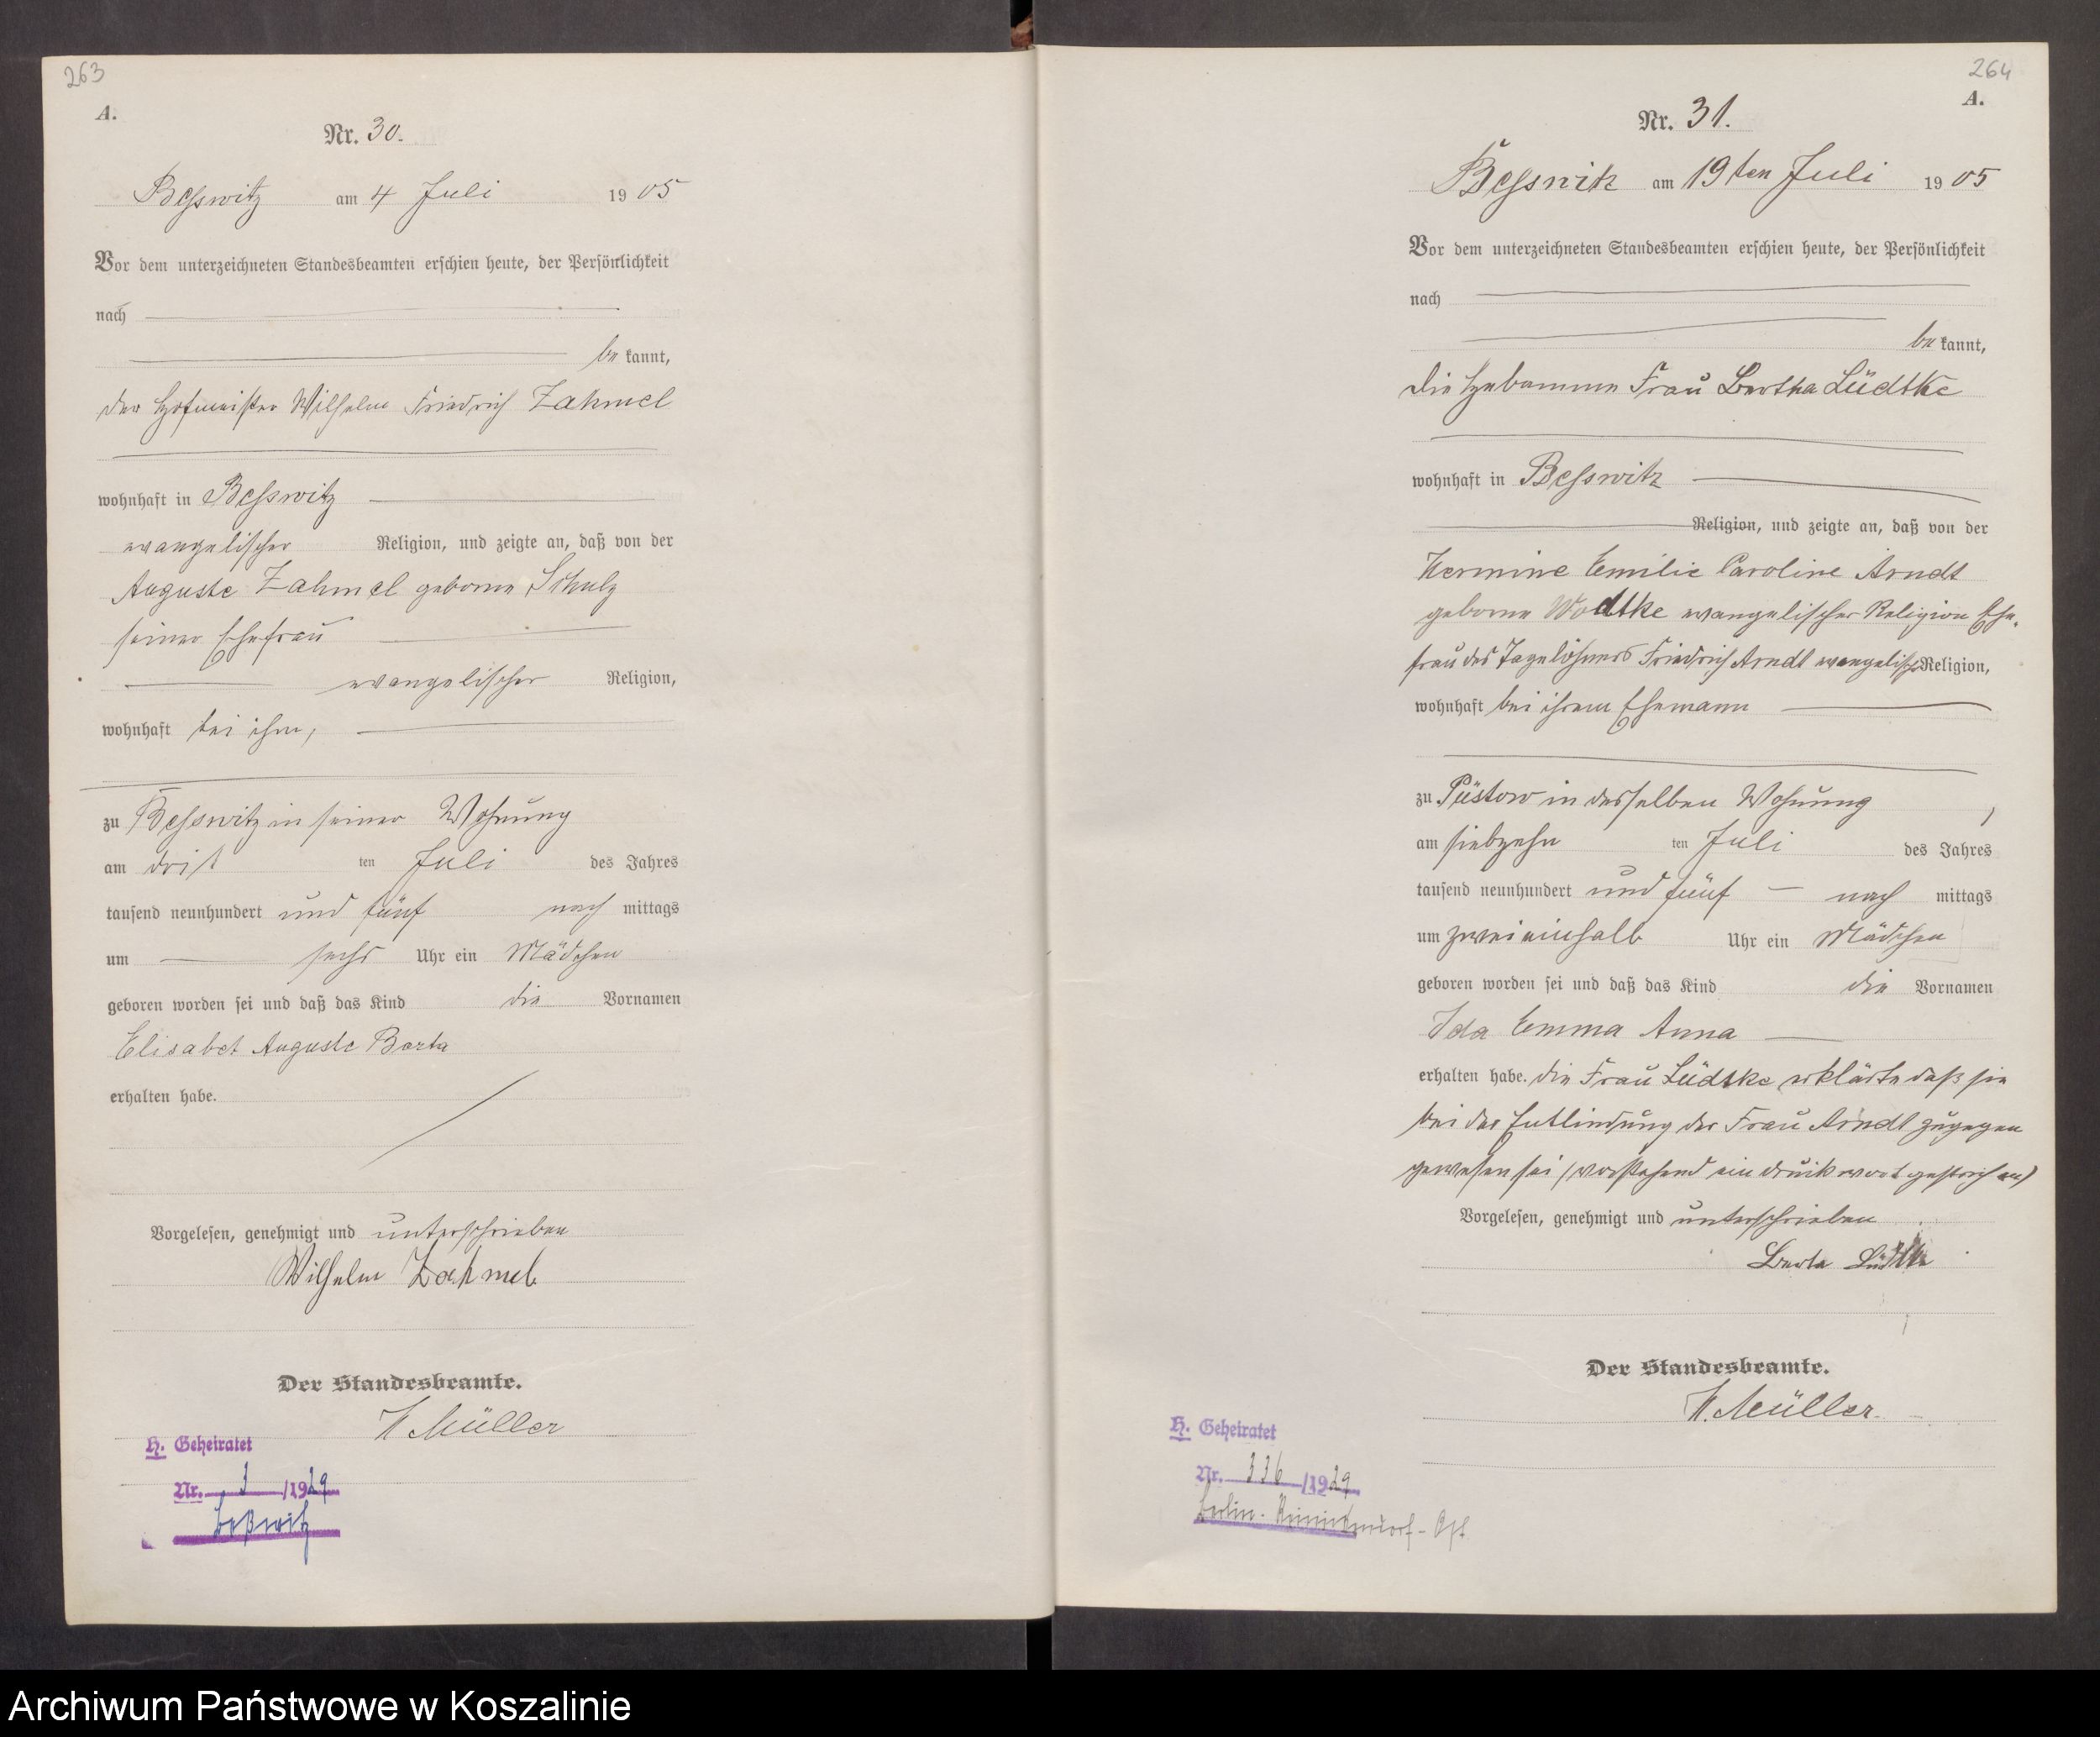 263
A.
Nr. 30.
Beßwitz am 4 Juli 1905
Vor dem unterzeichneten Standesbeamten erschien heute, der Persönlichkeit
nach
be kannt,
der Hofmeister Wilhelm Friedrich Zahmel
wohnhaft in Beßwitz
evangelischer Religion, und zeigte an, daß von der
Auguste Zahmel geborne Schulz
seiner Ehefrau
evangelischer Religion,
wohnhaft bei ihm,
zu Beßwitz in seiner Wohnung
am drit ten Juli des Jahres
tausend neunhundert und fünf nach mittags
um sechs Uhr ein Mädchen
geboren worden sei und daß das Kind die Vornamen
Elisabet Auguste Berta
erhalten habe.
Vorgelesen, genehmigt und unterschrieben
Wilhelm Zahmel
Der Standesbeamte.
H Müller
H. Geheiratet
Nr. 3 /1929
Beßwitz
264
A.
Nr. 31.
Beßwitz am 19ten Juli 1905
Vor dem unterzeichneten Standesbeamten erschien heute, der Persönlichkeit
nach
be kannt,
die Hebamme Frau Bertha Lüdtke
wohnhaft in Beßwitz
Religion, und zeigte an, daß von der
Hermine Emilie Caroline Arndt
geborne Wodtke evangelischer Religion Ehe-
frau des Tagelöhners Friedrich Arndt evangelisch Religion,
wohnhaft bei ihrem Ehemann
zu Püstow in desselben Wohnung,
am siebzehn ten Juli des Jahres
tausend neunhundert und fünf nach mittags
um zwei einhalb Uhr ein Mädchen
geboren worden sei und daß das Kind die Vornamen
Ida Emma Anna
erhalten habe. die Frau Lüdtke erklärte daß sie
bei der Entbindung der Frau Arndt zugegen
gewesen sei (vorstehend ein druckwort gestrichen)
Vorgelesen, genehmigt und unterschrieben
Berta Lüdtke
Der Standesbeamte.
H. Müller.
H. Geheiratet
Nr. 336 /1929
Berlin-Reinickendorf-Ost
Archiwum Państwowe w Koszalinie